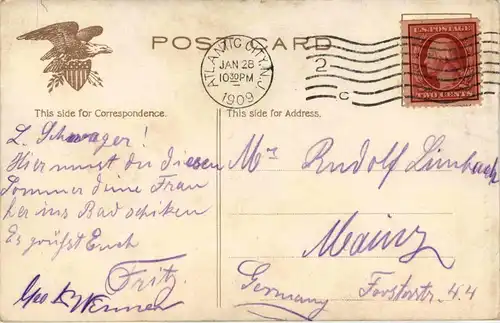 POST CARD
ATLANTIC CITY, N.J.
JAN 28
10 30 PM
1909
2
C
U.S. POSTAGE
TWO CENTS
This side for Correspondence.
This side for Address.
L. Schwager!
Hier musst du diesen
Sommer deine Frau
her ins Bad schiken
Es grüßt Euch
Fritz
Geo
Mrs Rudolf Limbach
Mainz
Forsterstr. 44
Germany